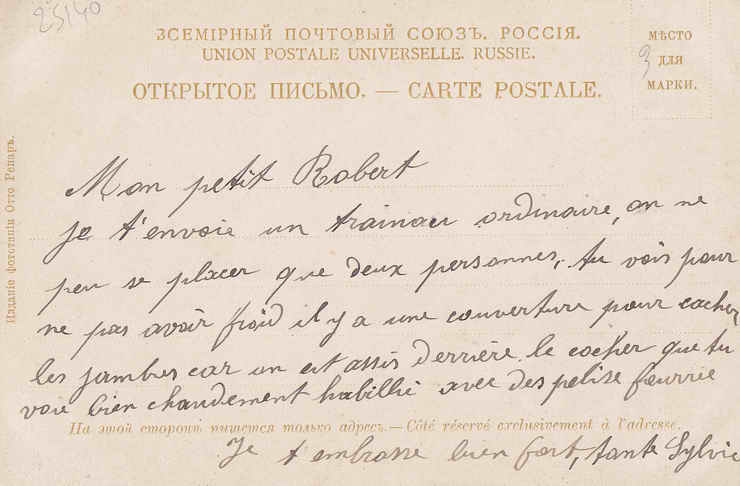 25140
ВСЕМІРНЫЙ ПОЧТОВЫЙ СОЮЗЪ. РОССІЯ.
UNION POSTALE UNIVERSELLE. RUSSIE.
ОТКРЫТОЕ ПИСЬМО. — CARTE POSTALE.
МѢСТО
3
ДЛЯ
МАРКИ.
Изданіе Фототипіи Отто Ренаръ.
Mon petit Robert
je t'envoie un trainau ordinaire, on ne
peu se placer que deux personnes, tu vois pour
ne pas avoir froid il y a une couverture pour cacher
les jambes car on est assis derrière le cocher que tu
voie bien chaudement habillié avec des pelise fourrie
На этой сторонѣ пишется только адресъ.—Côté réservé exclusivement à l'adresse.
Je t'embrasse bien fort, tante Sylvie